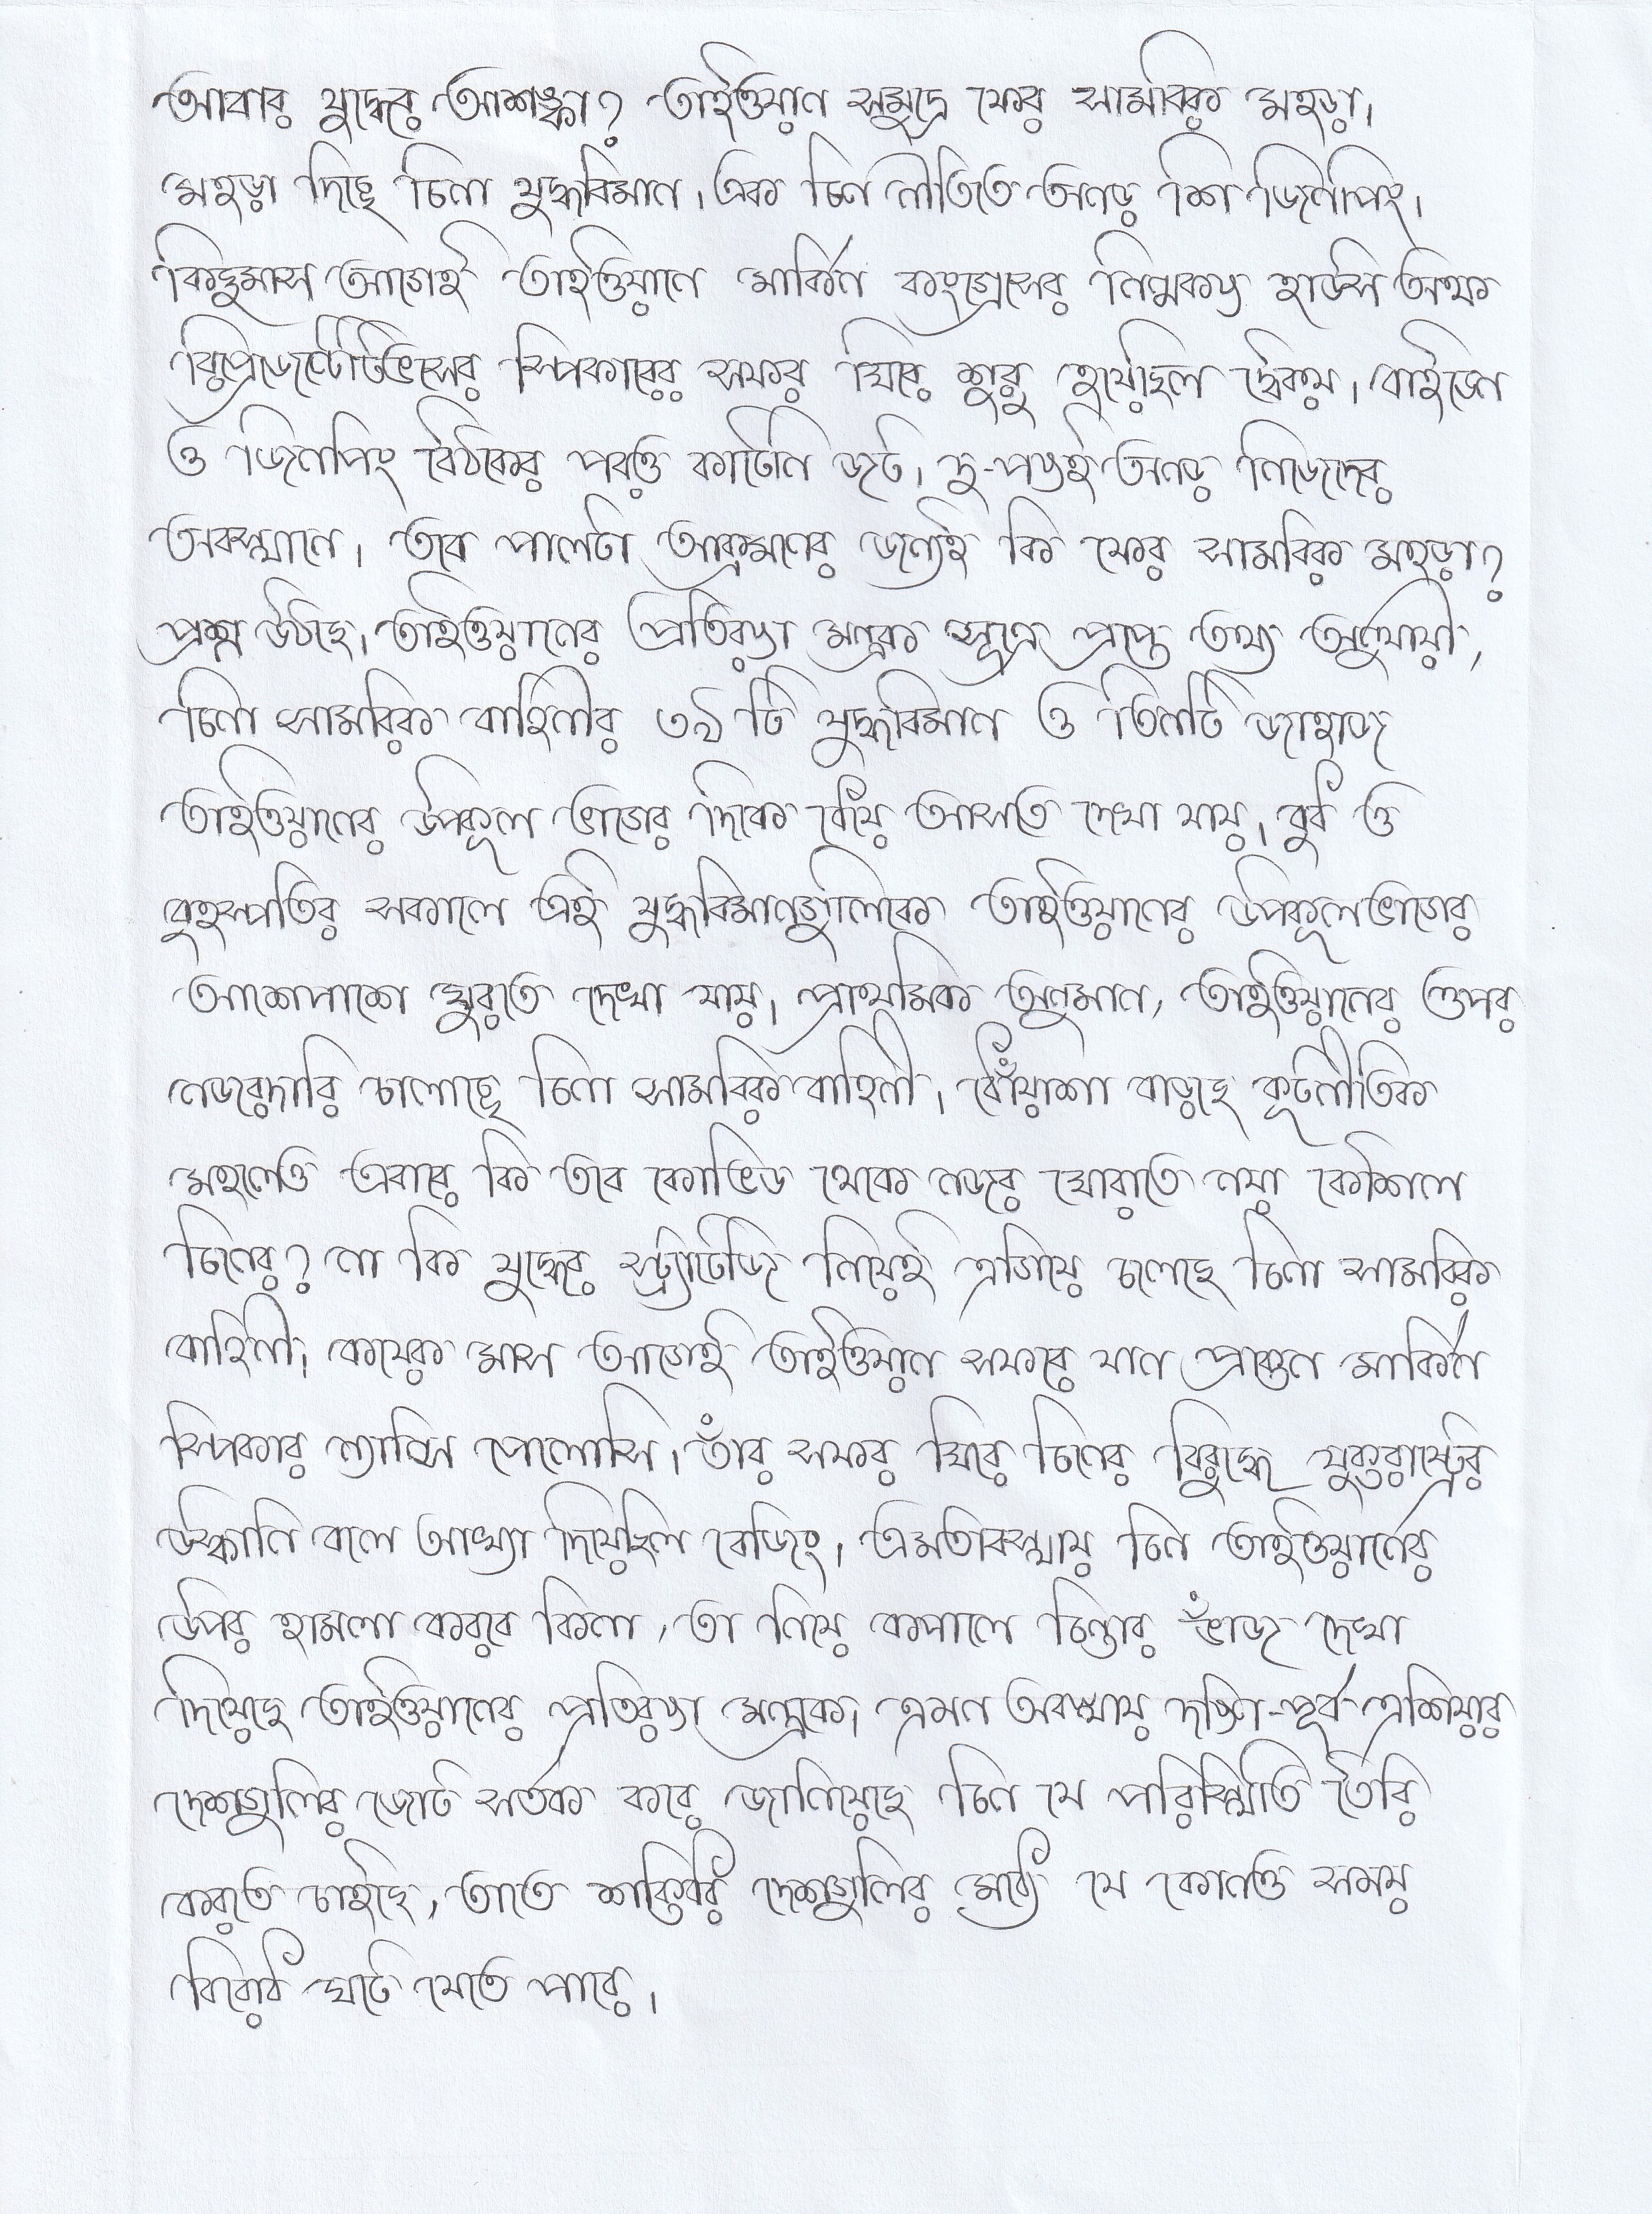 আবার যুদ্ধের আশঙ্কা? তাইওয়ান সমুদ্রে ফের সামরিক মহড়া।
মহড়া দিচ্ছে চিনা যুদ্ধবিমান। এক চিন নীতিতে অনড় শি জিনপিং।
কিছুমাস আগেই তাইওয়ানে মার্কিন কংগ্রেসের নিম্নকক্ষ হাউস অফ
রিপ্রেজেন্টেটিভসের স্পিকারের সফর ঘিরে শুরু হয়েছিল দ্বৈরথ। বাইডেন
ও জিনপিং বৈঠকের পরও কাটেনি জট। দু-পক্ষই অনড় নিজেদের
অবস্থানে। তবে পালটা আক্রমণের জন্যেই কি ফের সামরিক মহড়া?
প্রশ্ন উঠছে। তাইওয়ানের প্রতিরক্ষা মন্ত্রক সূত্রে প্রাপ্ত তথ্য অনুযায়ী,
চিনা সামরিক বাহিনীর ৩৯ টি যুদ্ধবিমান ও তিনটি জাহাজ
তাইওয়ানের উপকূল ভাগের দিকে ধেয়ে আসতে দেখা যায়। বুধ ও
বৃহস্পতির সকালে এই যুদ্ধবিমানগুলিকে তাইওয়ানের উপকূলভাগের
আশেপাশে ঘুরতে দেখা যায়। প্রাথমিক অনুমান, তাইওয়ানের ওপর
নজরদারি চালাচ্ছে চিনা সামরিক বাহিনী। ধোঁয়াশা বাড়ছে কূটনীতিক
মহলেও এবারে কি তবে কোভিড থেকে নজর ঘোরাতে নয়া কৌশল
চিনের? না কি যুদ্ধের স্ট্র্যাটেজি নিয়েই এগিয়ে চলেছে চিনা সামরিক
বাহিনী। কয়েক মাস আগেই তাইওয়ান সফরে যান প্রাক্তন মার্কিন
স্পিকার ন্যান্সি পেলোসি। তাঁর সফর ঘিরে চিনের বিরুদ্ধে যুক্তরাষ্ট্রের
উস্কানি বলে আখ্যা দিয়েছিল বেজিং। এমতাবস্থায় চিন তাইওয়ানের
উপর হামলা করবে কিনা, তা নিয়ে কপালে চিন্তার ভাঁজ দেখা
দিয়েছে তাইওয়ানের প্রতিরক্ষা মন্ত্রকে। এমন অবস্থায় দক্ষিণ-পূর্ব এশিয়ার
দেশগুলির জোট সর্তক করে জানিয়েছে চিন যে পরিস্থিতি তৈরি
করতে চাইছে, তাতে শক্তিধর দেশগুলির মধ্যে যে কোনও সময়
বিরোধ ঘটে যেতে পারে।